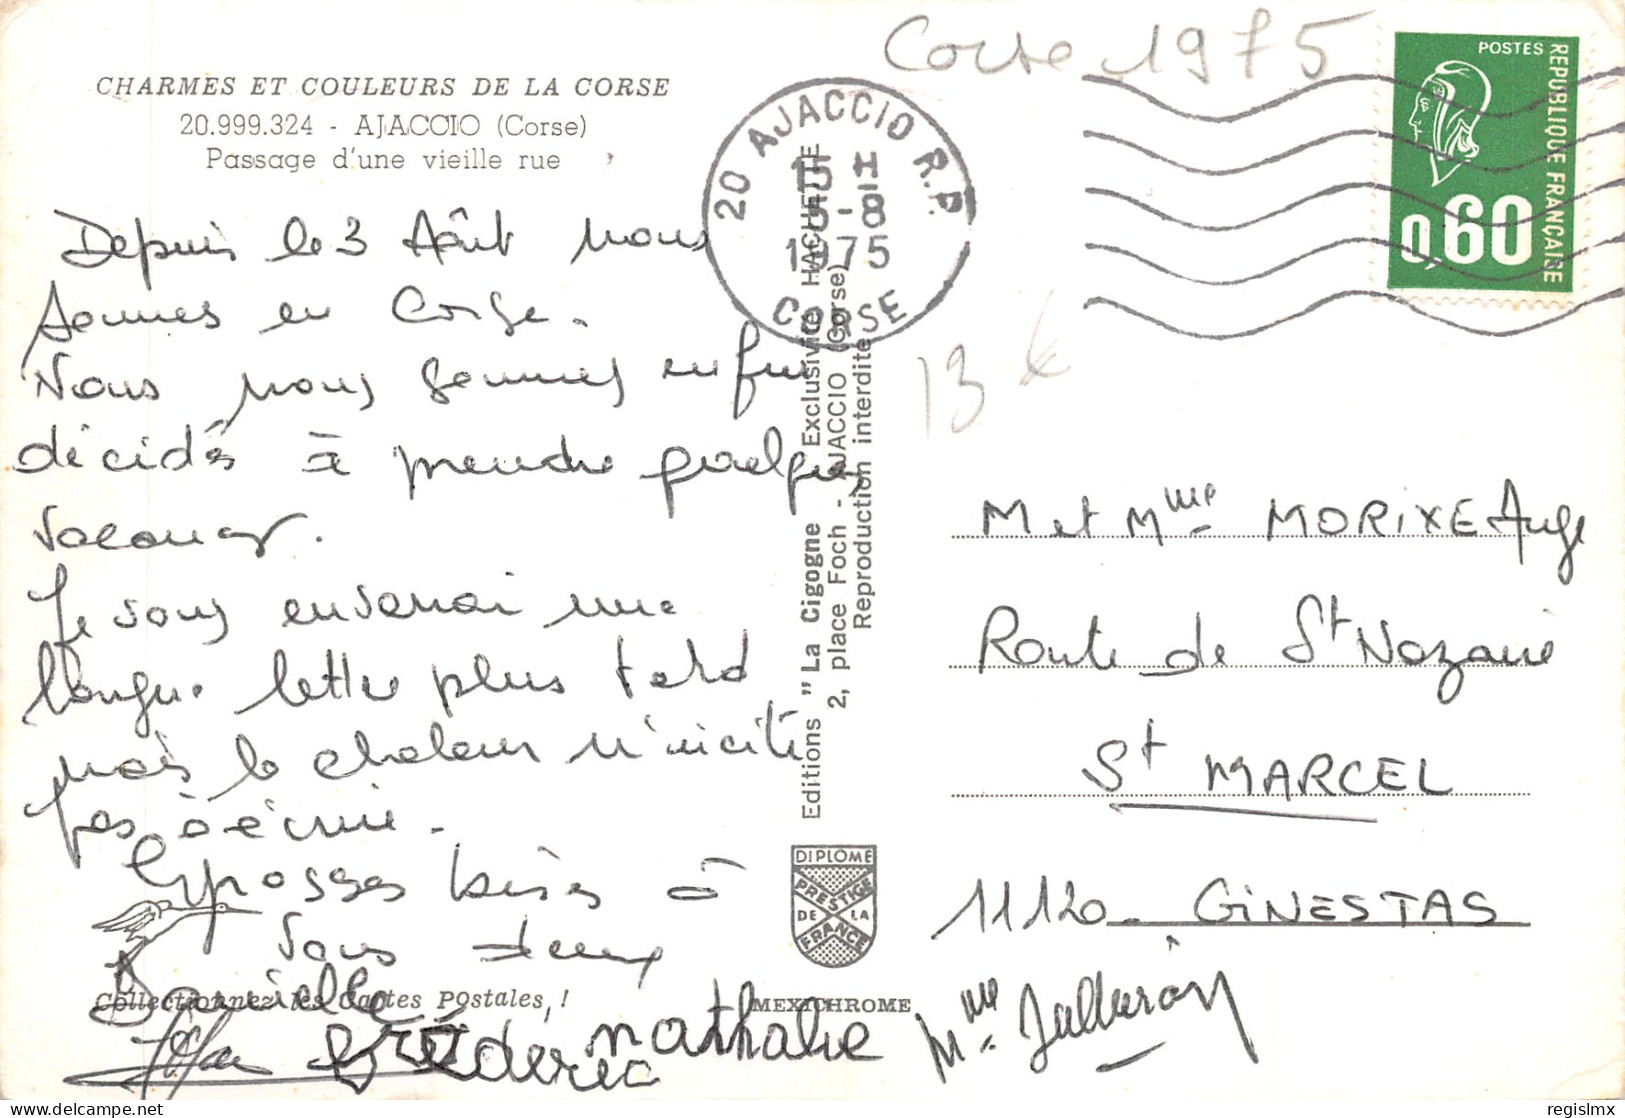 CHARMES ET COULEURS DE LA CORSE
20.999.324 - AJACCIO (Corse)
Passage d'une vieille rue
Depuis le 3 Août nous
sommes en Corse.
Nous nous sommes enfin
décidés à prendre quelques
vacances.
Je vous enverrai une
longue lettre plus tard
mais la chaleur n'incite
pas à écrire.
Grosses bises à
vous deux
Danielle
Collectionnez les Cartes Postales, !
Frédéric
nathalie
Mme
Corse 1975
20 AJACCIO R.P.
15 H
5-8
1975
CORSE
POSTES
REPUBLIQUE FRANÇAISE
0,60
13
Editions "La Cigogne" Exclusivité HACHETTE
2, place Foch - AJACCIO (Corse)
Reproduction interdite
DIPLOME
PRESTIGE
DE LA
FRANCE
MEXICHROME
M et Mme MORIXE Ange
Route de St Nazaire
St MARCEL
11120 - GINESTAS
delcampe.net
regislmx